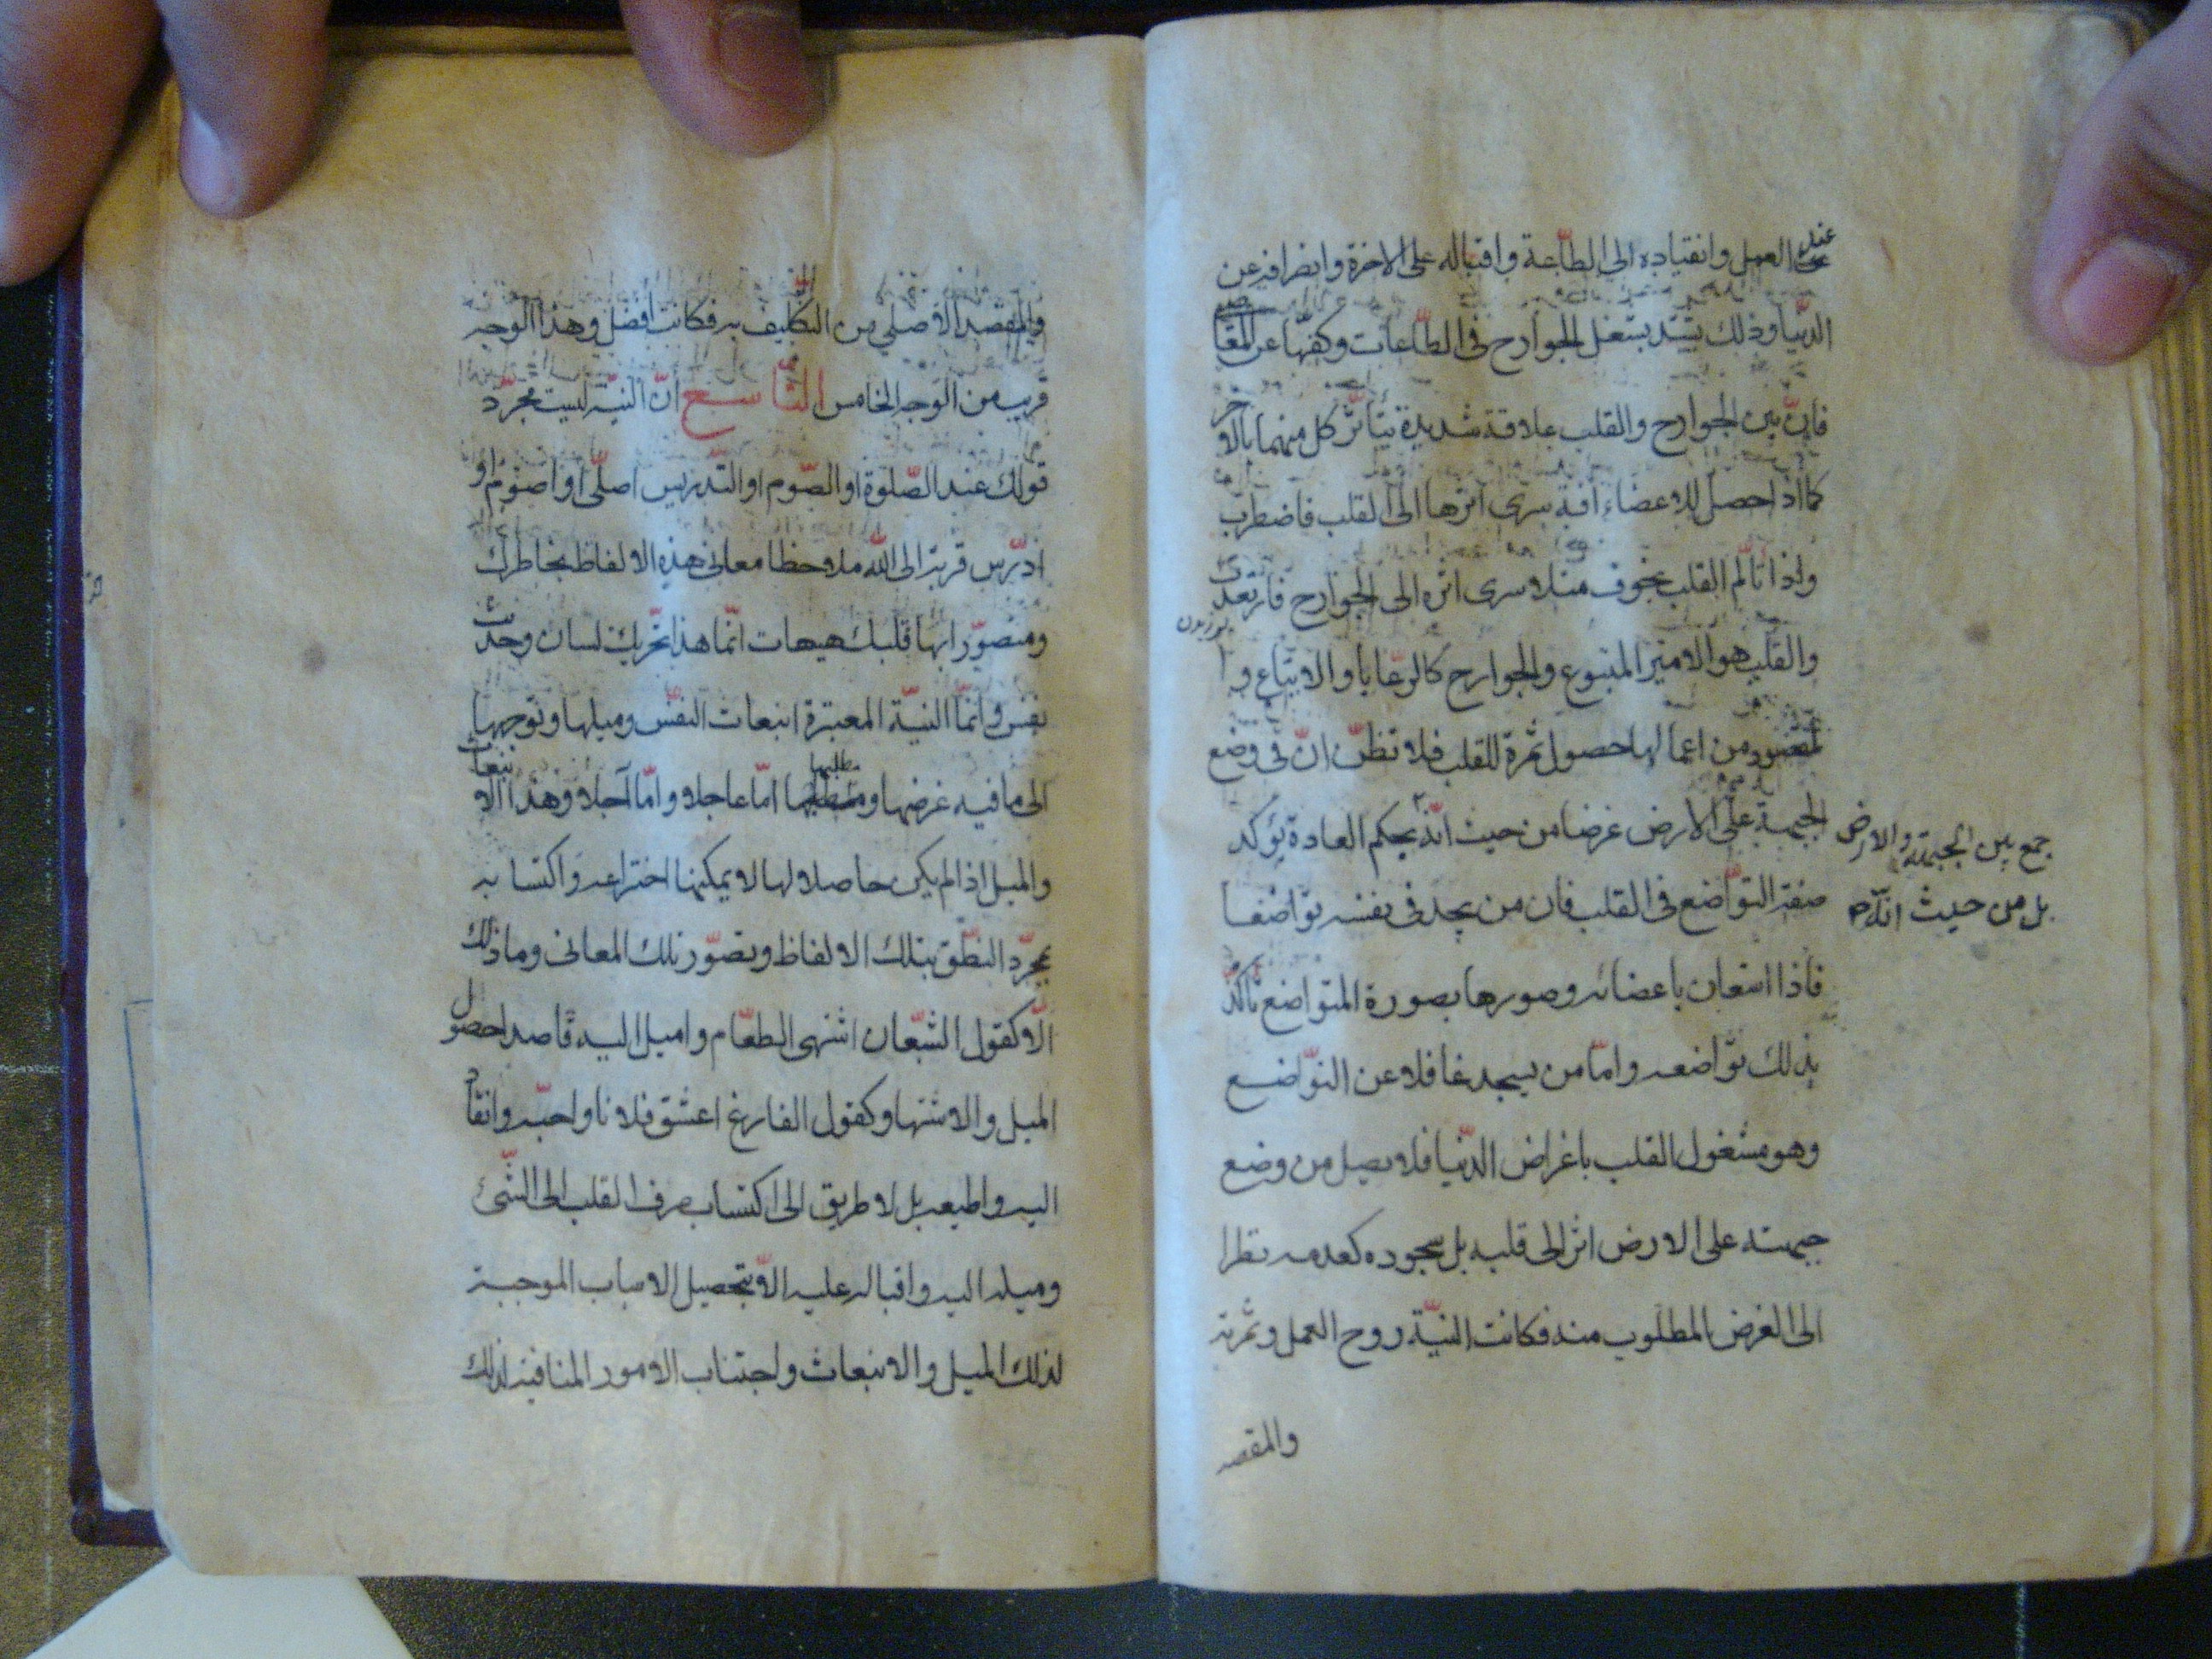 عند العمل وانقياده الى الطّاعة واقباله على الاخرة وانصرافه عن
الدّنيا وذلك يشتد بشغل الجوارح فى الطّاعات وكفّها عن المعا صى
فانّ بين الجوارح والقلب علاقة شديدة يتأثّر كل منهما بالا خر
كما اذا حصل للاعضاء افة سرى اثرها الى القلب فاضطرب
واذا تألّم القلب بخوف مثلا سرى اثره الى الجوارح فارتعدت
والقلب هو الامير المتبوع والجوارح كالرّعايا والاتباع و
المقصود من اعمالها حصول ثمرة للقلب فلا تظنّ انّ فى وضع
الجبهة على الارض غرضا من حيث انّه بحكم العادة يؤكد
جمع بين الجبهة والارض
بل من حيث انّه
صفة التّواضع فى القلب فان من يجد فى نفسه تواضعا
فاذا استعان باعضائه وصورها بصورة المتواضع تأكّد
بذلك تواضعه وامّا من يسجد غافلا عن التّواضع
وهو مشغول القلب باغراض الدّنيا فلا يصل من وضع
جبهته على الارض اثر الى قلبه بل سجوده كعدمه نظرا
الى الغرض المطلوب منه فكانت النيّة روح العمل وثمرته
والمقصد
والمقصد الاصلي من التّكليف به فكانت افضل وهذا الوجه
قريب من الوجه الخامس التّاسع انّ النيّة ليست مجرّد
قولك عند الصّلوة او الصّوم او التّدريس اصلّى او اصوم او
ادرّس قربة الى الله ملاحظا معانى هذه الالفاظ بخاطرك
ومتصوّرا بها قلبك هيهات انّما هذا تحريك لسان وحديث
نفس وانّما النيّة المعتبرة انبعاث النّفس وميلها وتوجهها
الى ما فيه غرضها ومطلبها امّا عاجلا وامّا آجلا وهذا الا نبعاث
والميل اذا لم يكن حاصلا لها لا يمكنها اختراعه واكتسابه
بمجرّد النّطق بتلك الالفاظ وتصوّر تلك المعانى وما ذلك
الّا كقول الشّبعان اشتهى الطّعام واميل اليه قاصدا حصول
الميل والاشتها وكقول الفارغ اعشق فلانا واحبّه وانقاد
اليه واطيعه بل لا طريق الى اكتساب صرف القلب الى الشّئ
وميله اليه واقباله عليه الّا بتحصيل الاسباب الموجبة
لذلك الميل والانبعاث واجتناب الامور المنافية لذلك